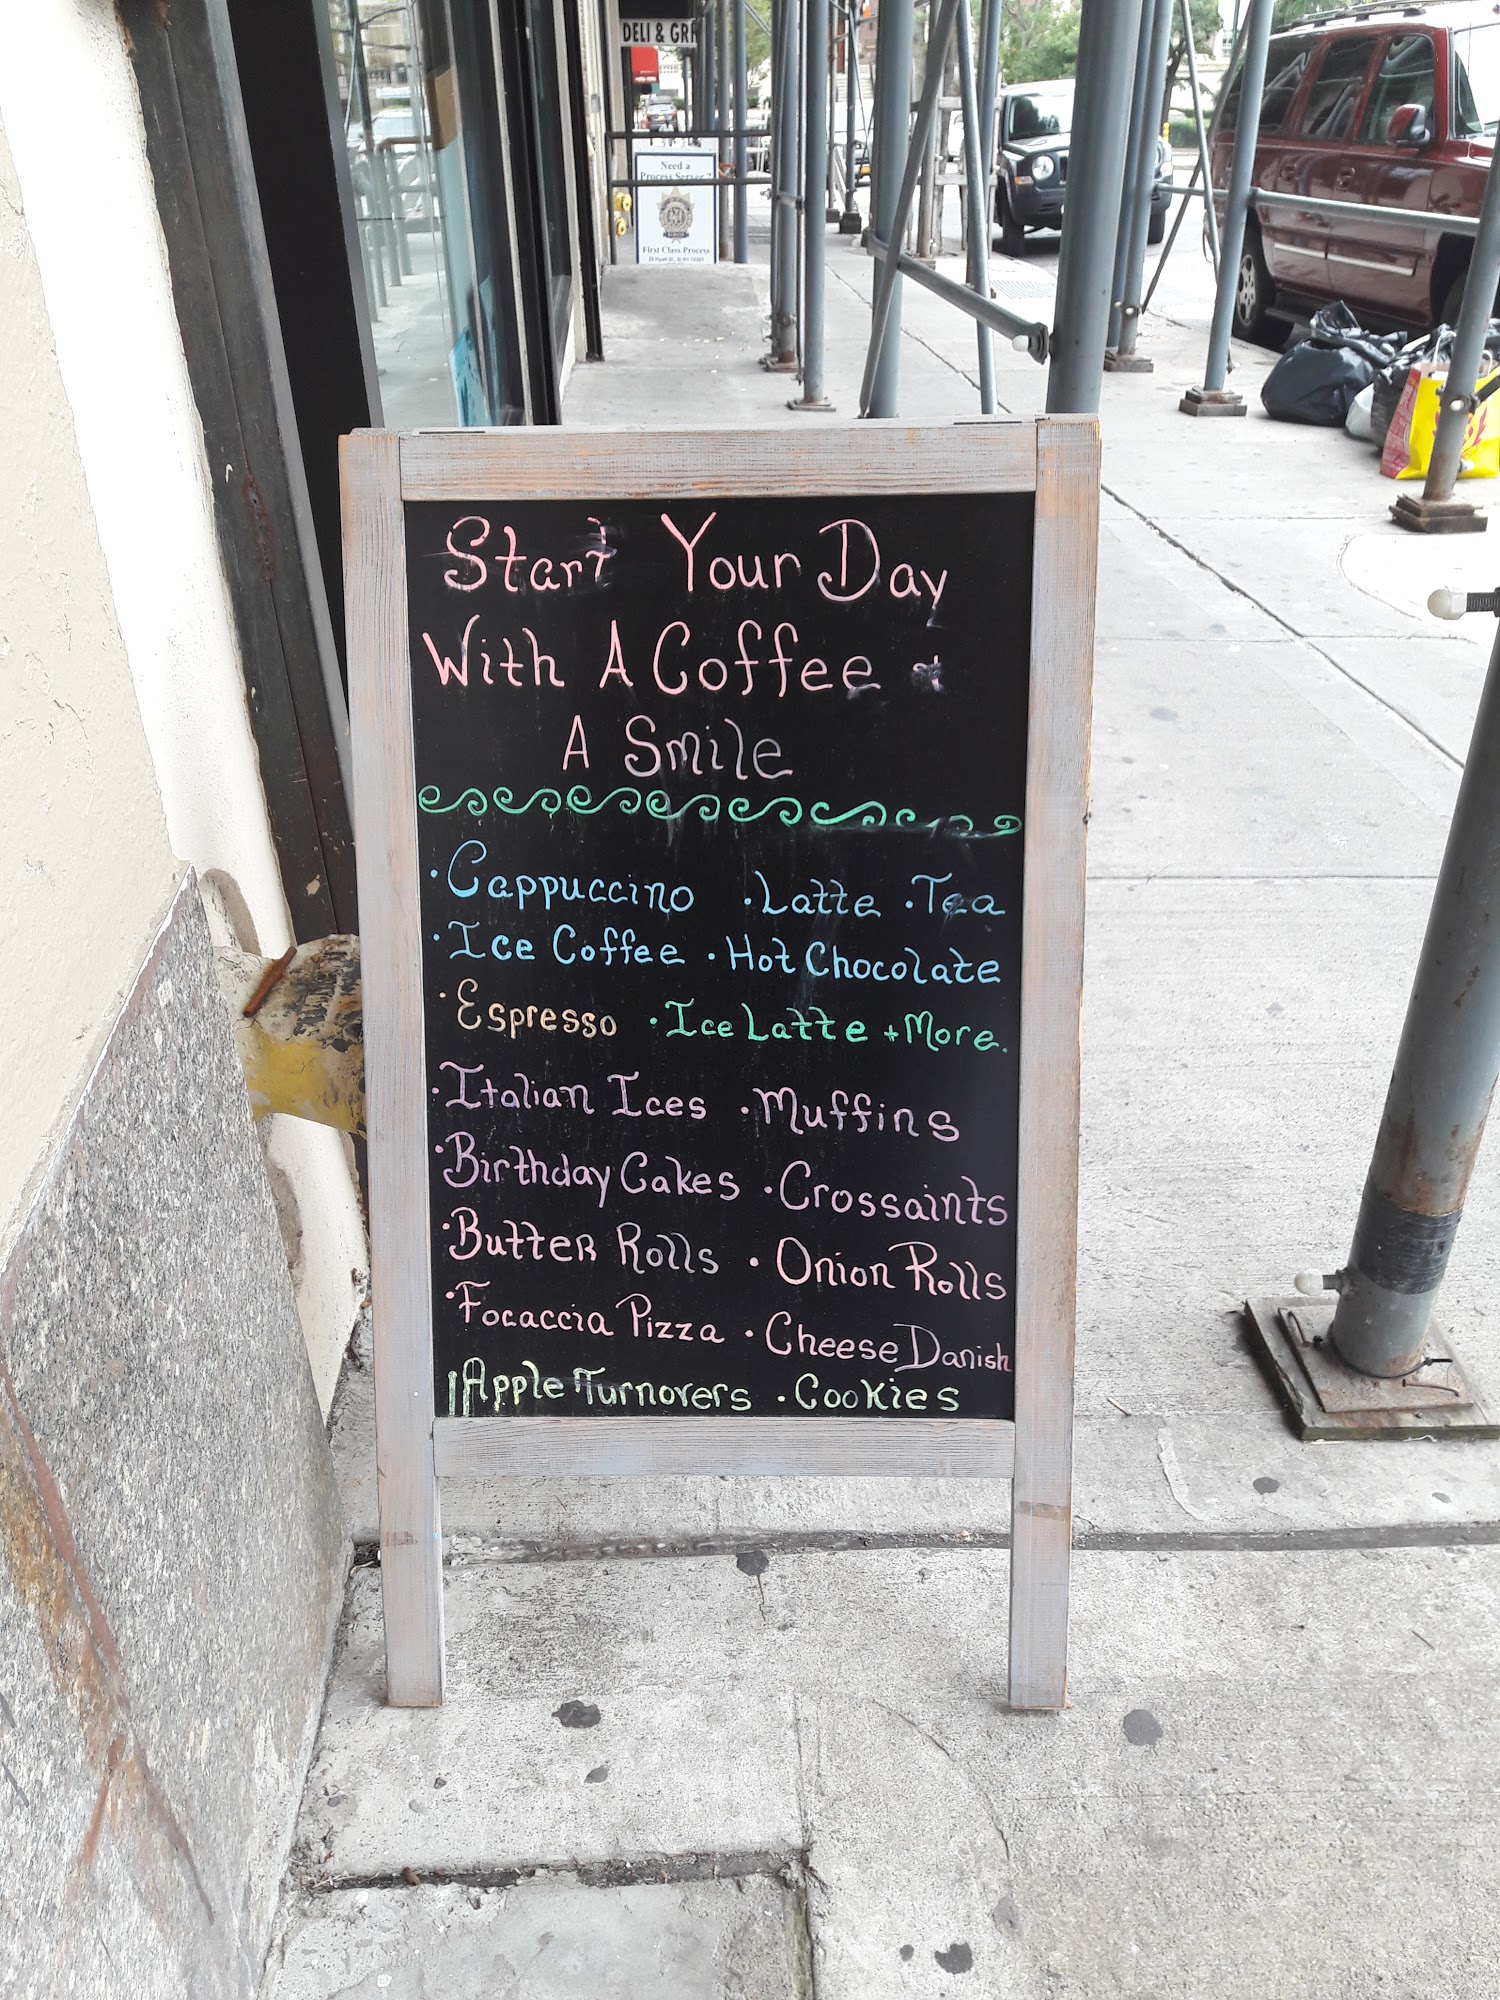 DELI & GR
Need a
Process Server?
First Class Process
Start Your Day
With A Coffee +
A Smile
· Cappuccino · Latte · Tea
· Ice Coffee · Hot Chocolate
· Espresso · Ice Latte + More.
· Italian Ices · Muffins
· Birthday Cakes · Crossaints
· Butter Rolls · Onion Rolls
· Focaccia Pizza · Cheese Danish
Apple Turnovers · Cookies